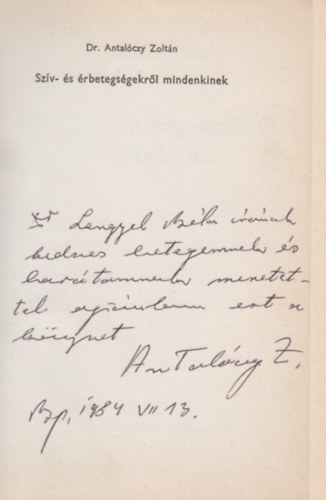 Dr. Antalóczy Zoltán
Szív- és érbetegségekről mindenkinek
Lengyel Béla írónak
kedves betegemnek és
barátomnak szeretet-
tel ajánlom ezt a
könyvet
Antalóczy Z.
Bp, 1984 VII 13.